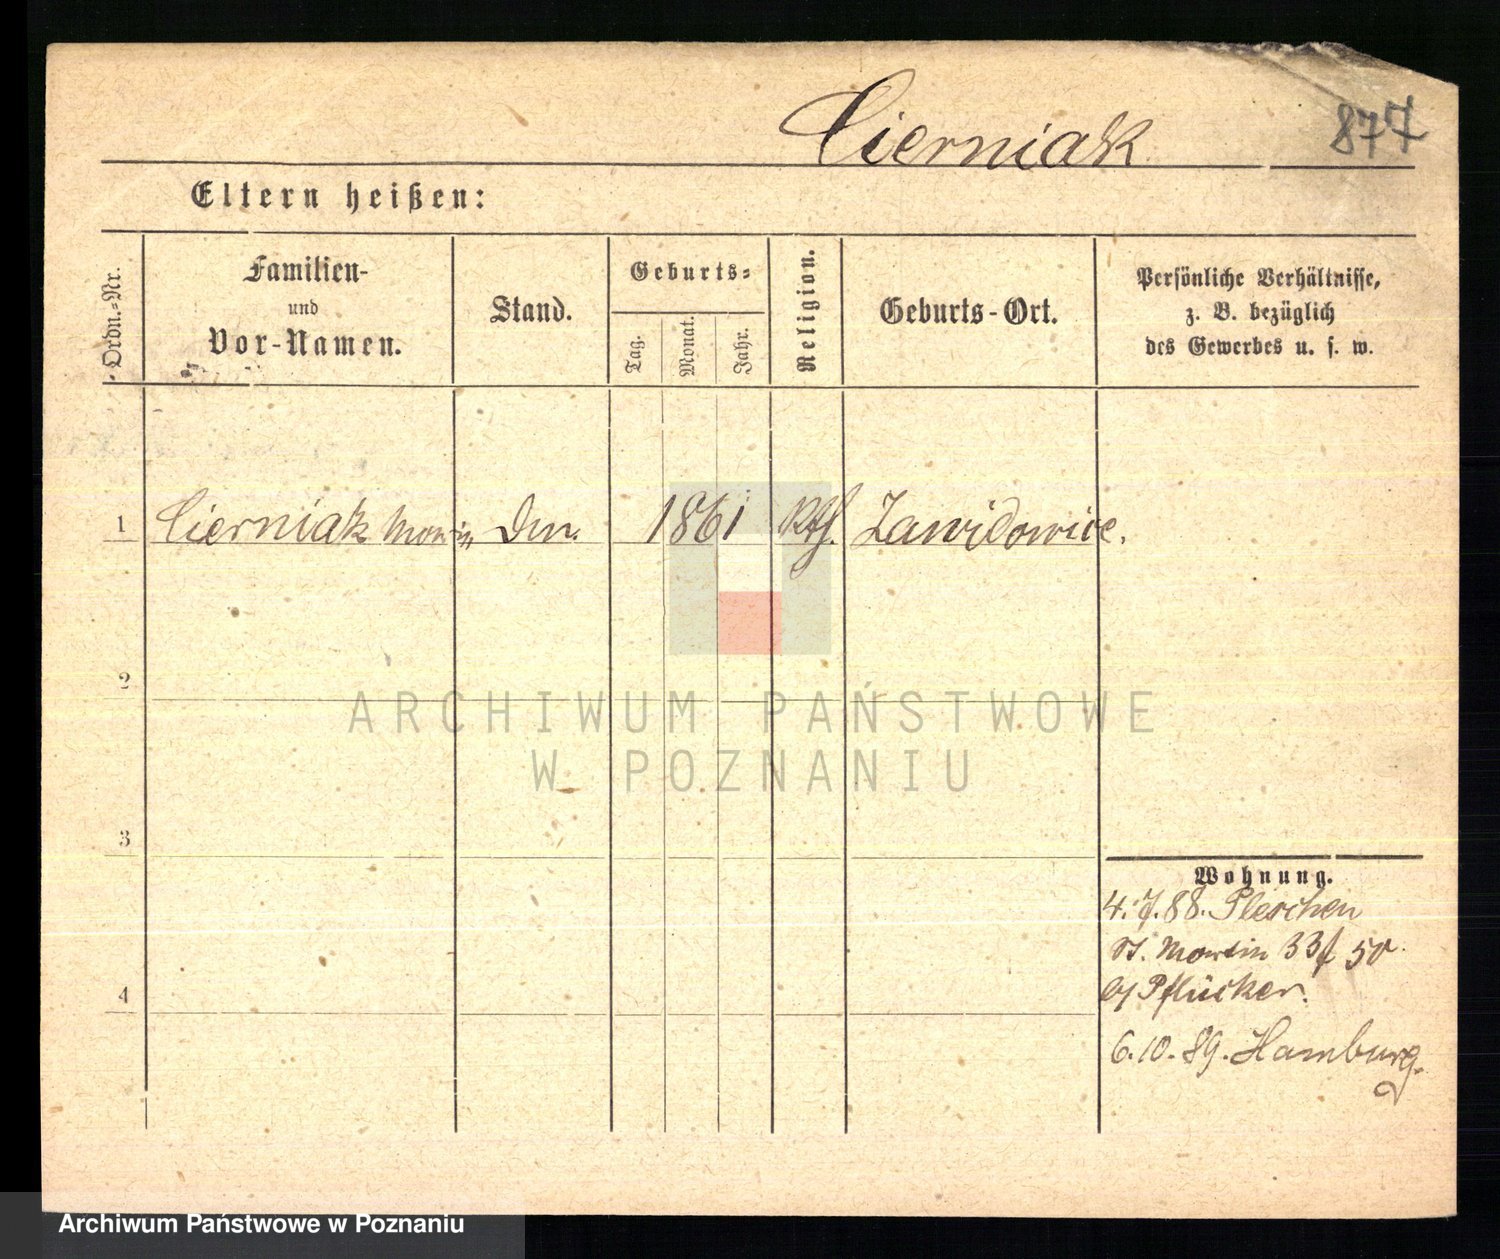 Cierniak
877
Eltern heißen:
Ordn.-Nr.
Familien-
und
Vor-Namen.
Stand.
Geburts-
Tag.
Monat.
Jahr.
Religion.
Geburts-Ort.
Persönliche Verhältnisse,
z. B. bezüglich
des Gewerbes u. s. w.
1 Cierniak 1861 Kth. Zawidowice.
2
ARCHIWUM PAŃSTWOWE
W POZNANIU
3
4
Wohnung.
4.7.88. Pleschen
St. Martin 33 50
b/ Pflücker.
6.10.89. Hamburg.
Archiwum Państwowe w Poznaniu